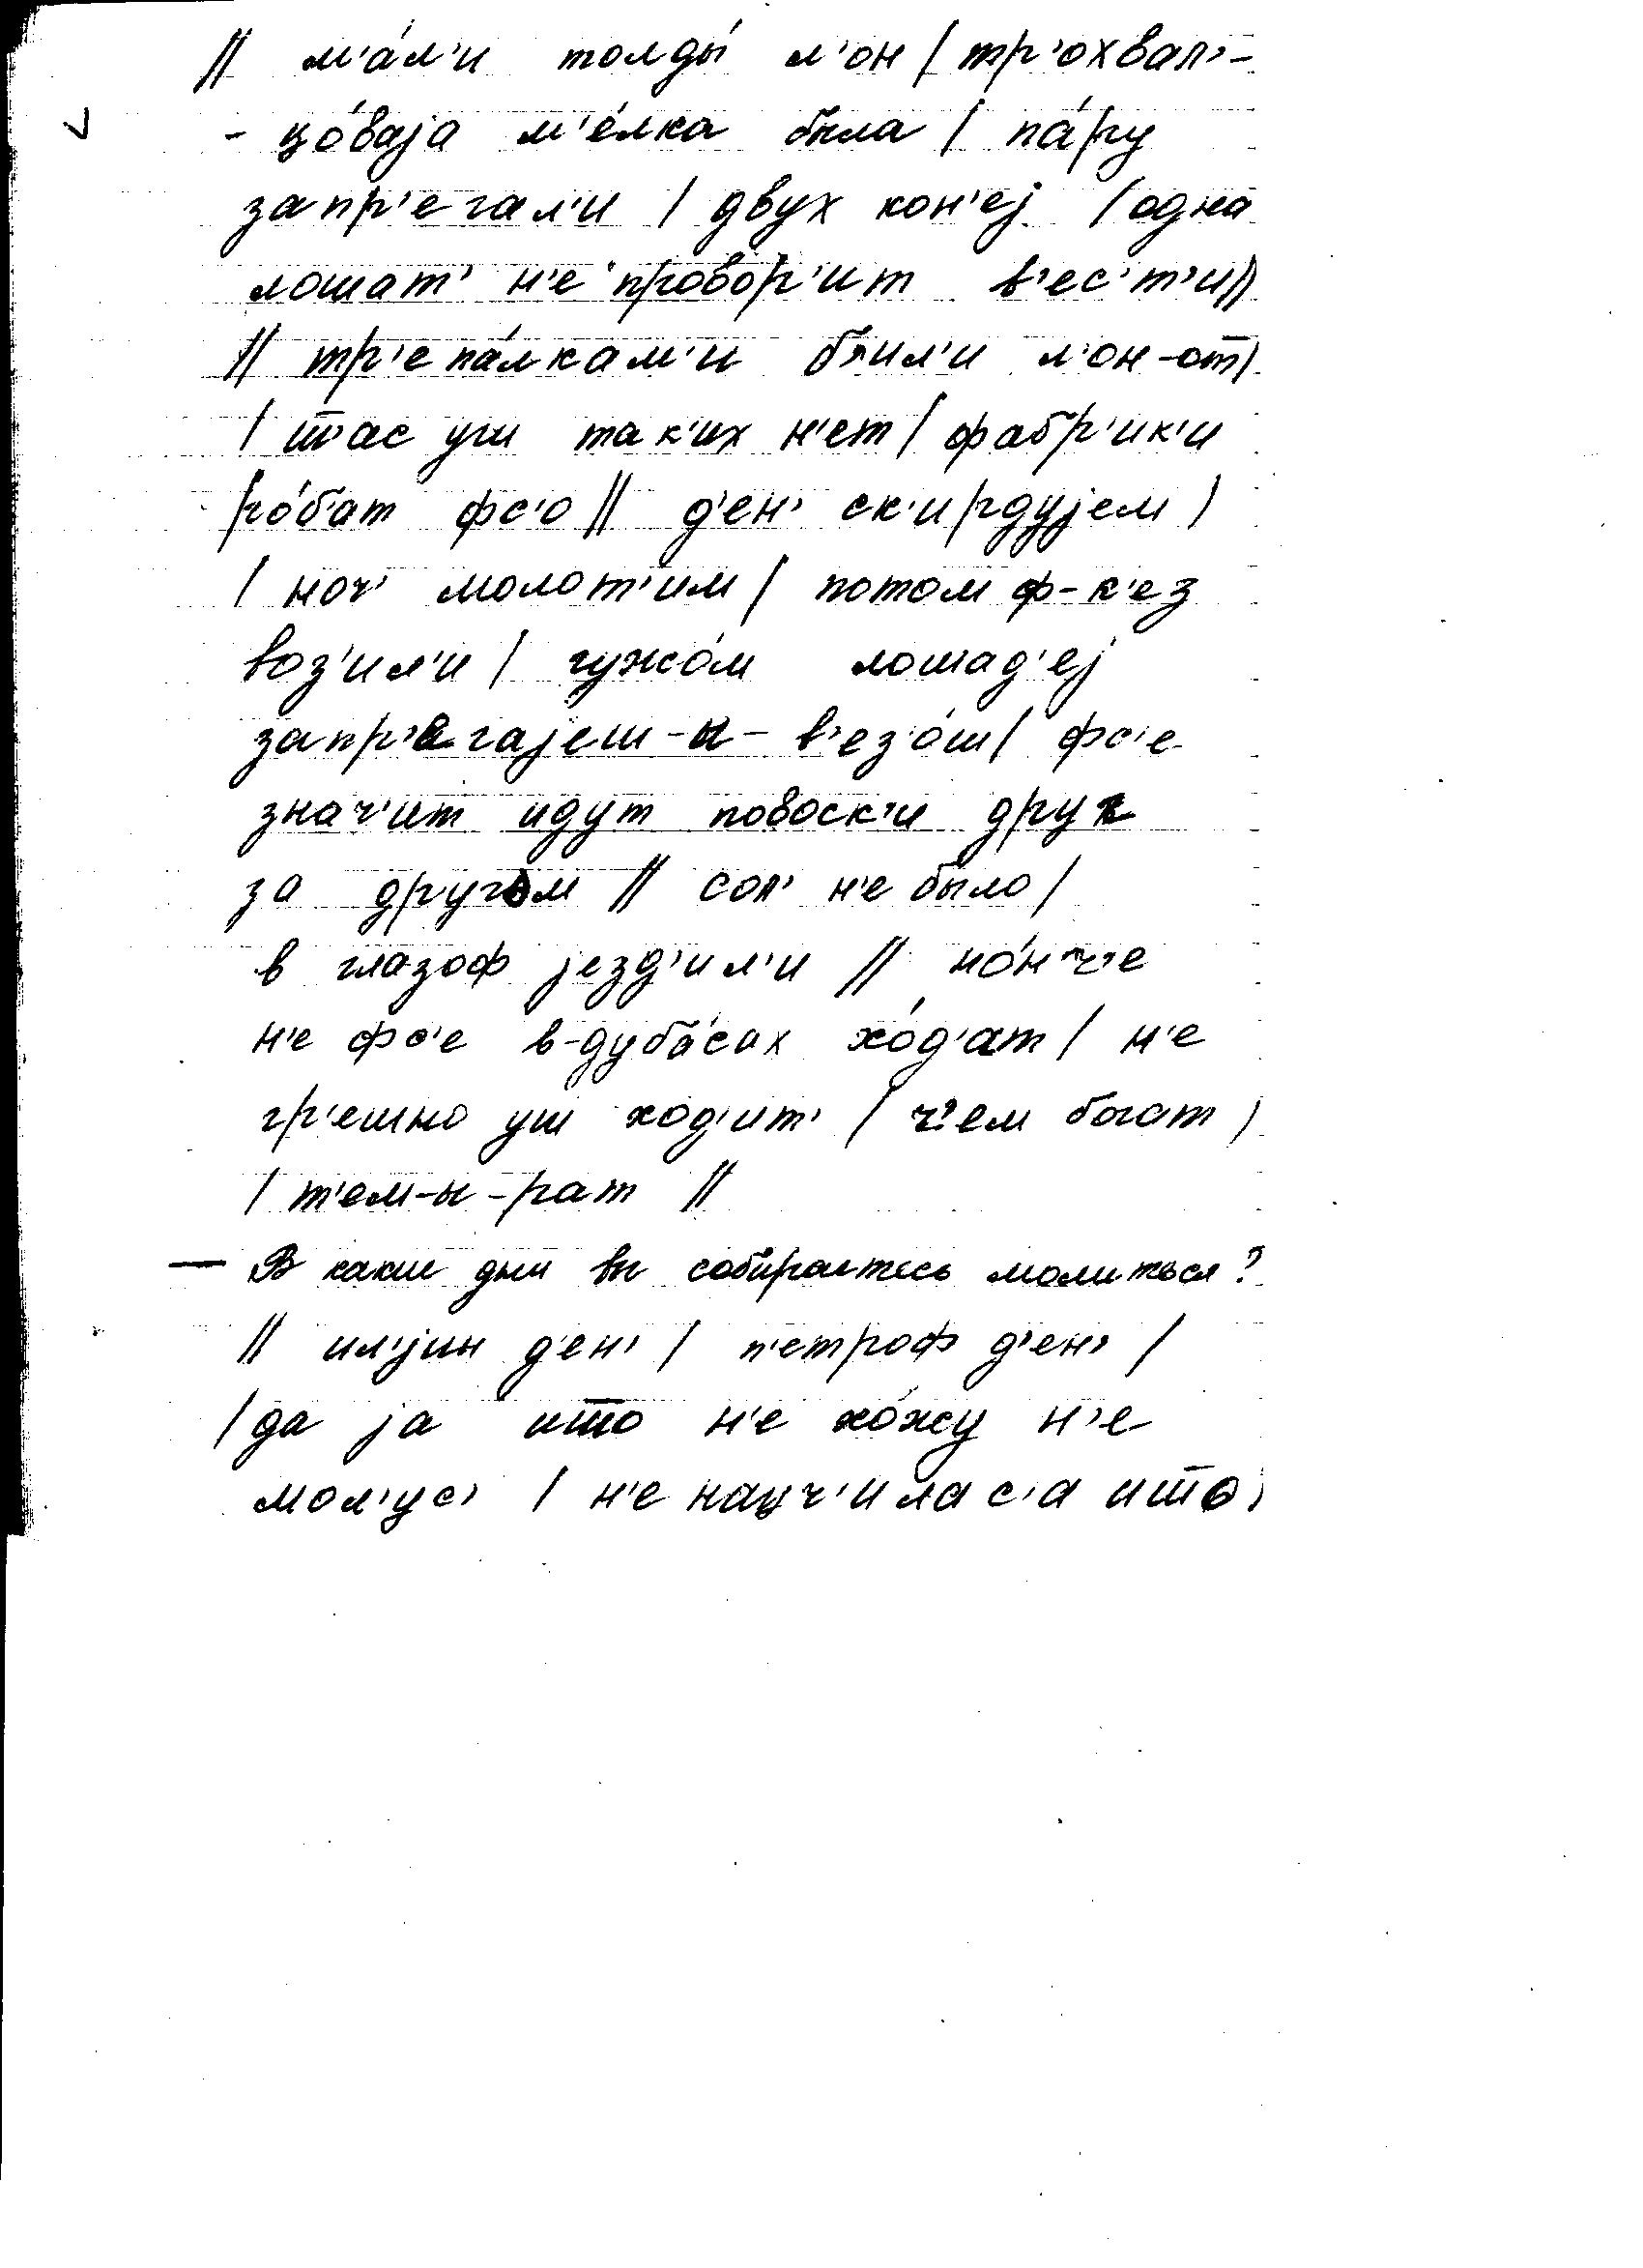 // м'áл'и толды́ л'он / тр'охвал'-
- цóваја м'éлка была / пáру
запр'егал'и / двух кон'еј / одна
лошат' н'е провор'ит в'ес'т'и //
// тр'епáлкам'и бил'и л'он-от /
/ шас уш так'их н'ет / фабр'ик'и
рóб'ат фс'о // д'ен' ск'ирдујем /
/ ноч' молот'им / потом ф-к'ез
воз'ил'и / гужóм лошад'еј
запр'егајеш-ы-в'ез'óш / фс'е
знач'ит идут повоск'и друг
за другом // сол' н'е было /
в глазоф језд'ил'и // нóнч'е
н'е фс'е в-дубáсах хóд'ат / н'е
гр'ешно уш ход'ит' / ч'ем богат /
/ т'ем-ы-рат //
— В какие дни вы собираетесь молиться?
// ил'јин д'ен' / п'етроф д'ен' /
/ да ја ишо н'е хóжу н'е
мол'ус' / н'е науч'илас'а ишо /